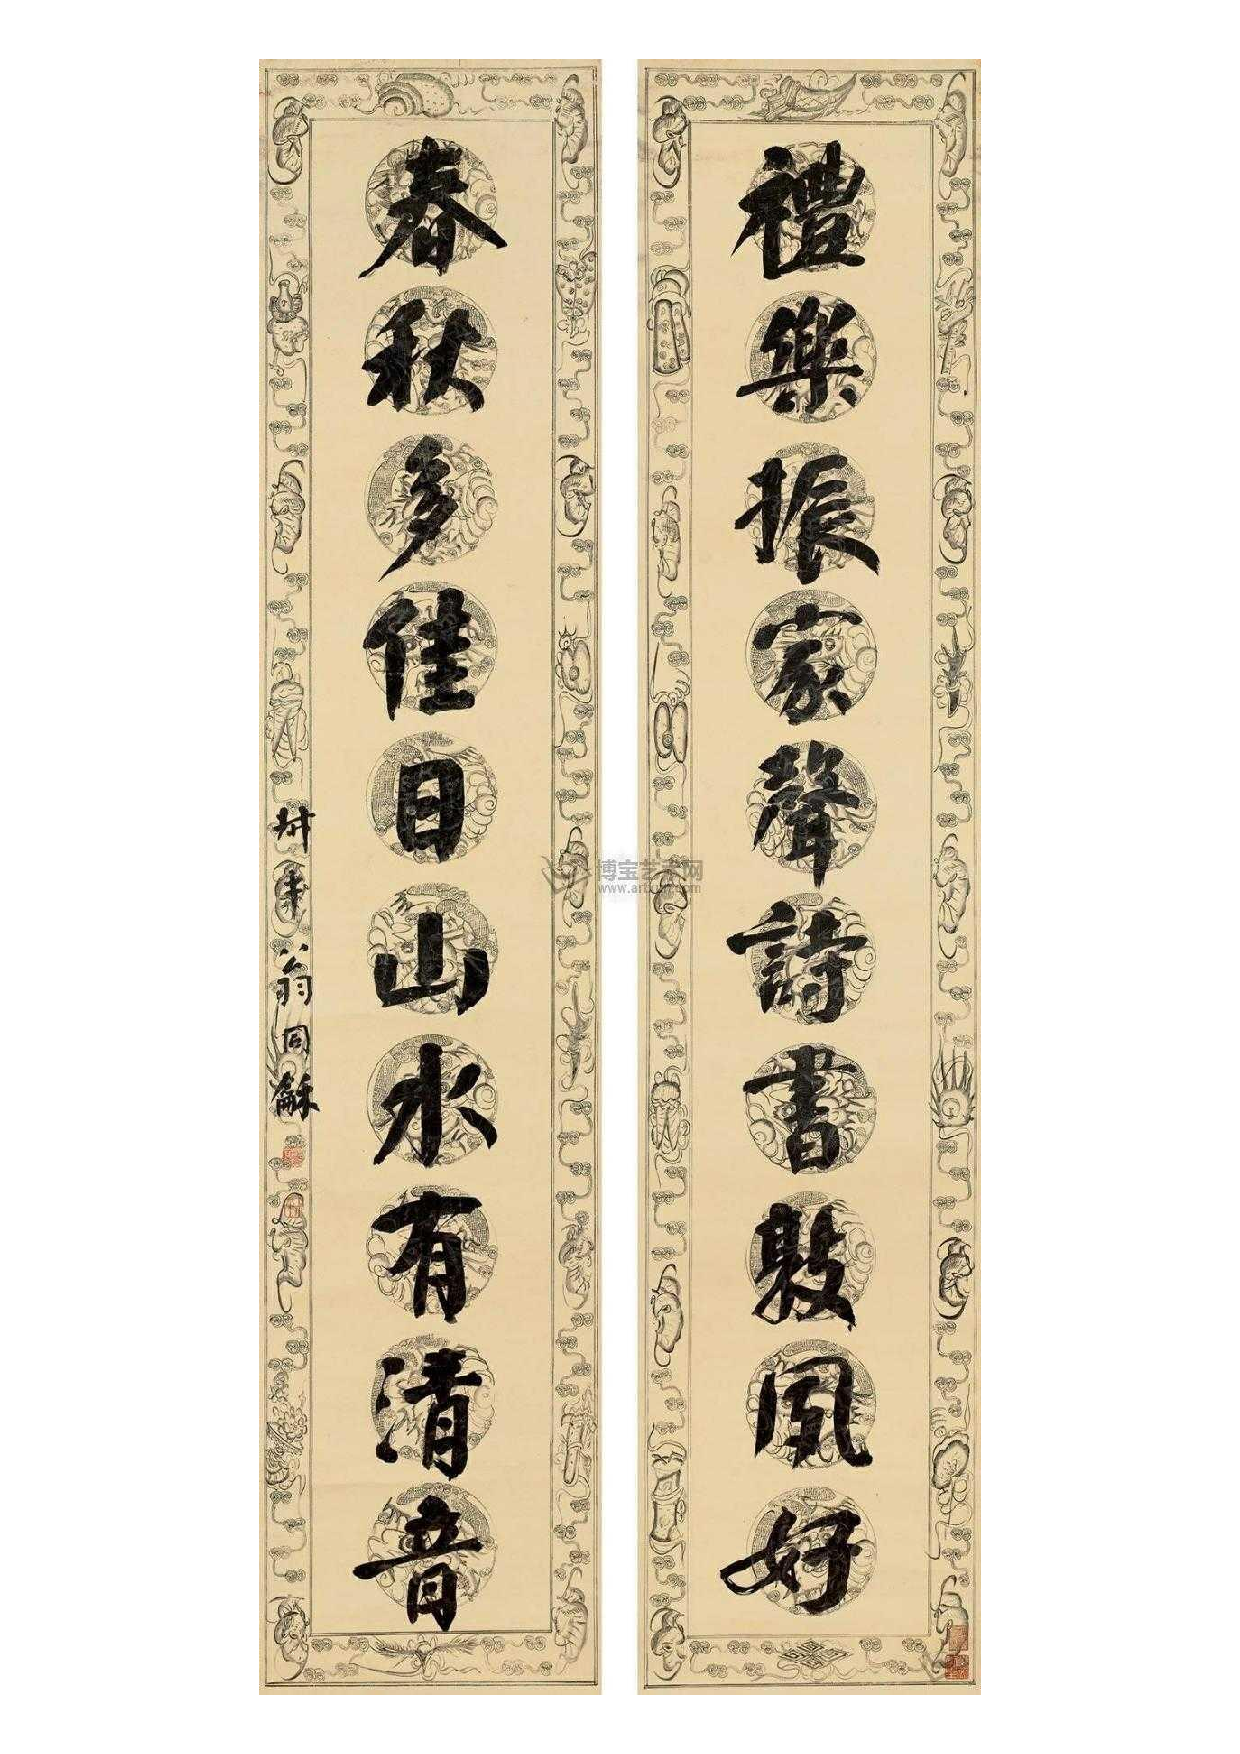 禮樂振家聲詩書敦夙好
春秋多佳日山水有清音
瓶生翁同龢
博宝艺术网
www.artxun.com